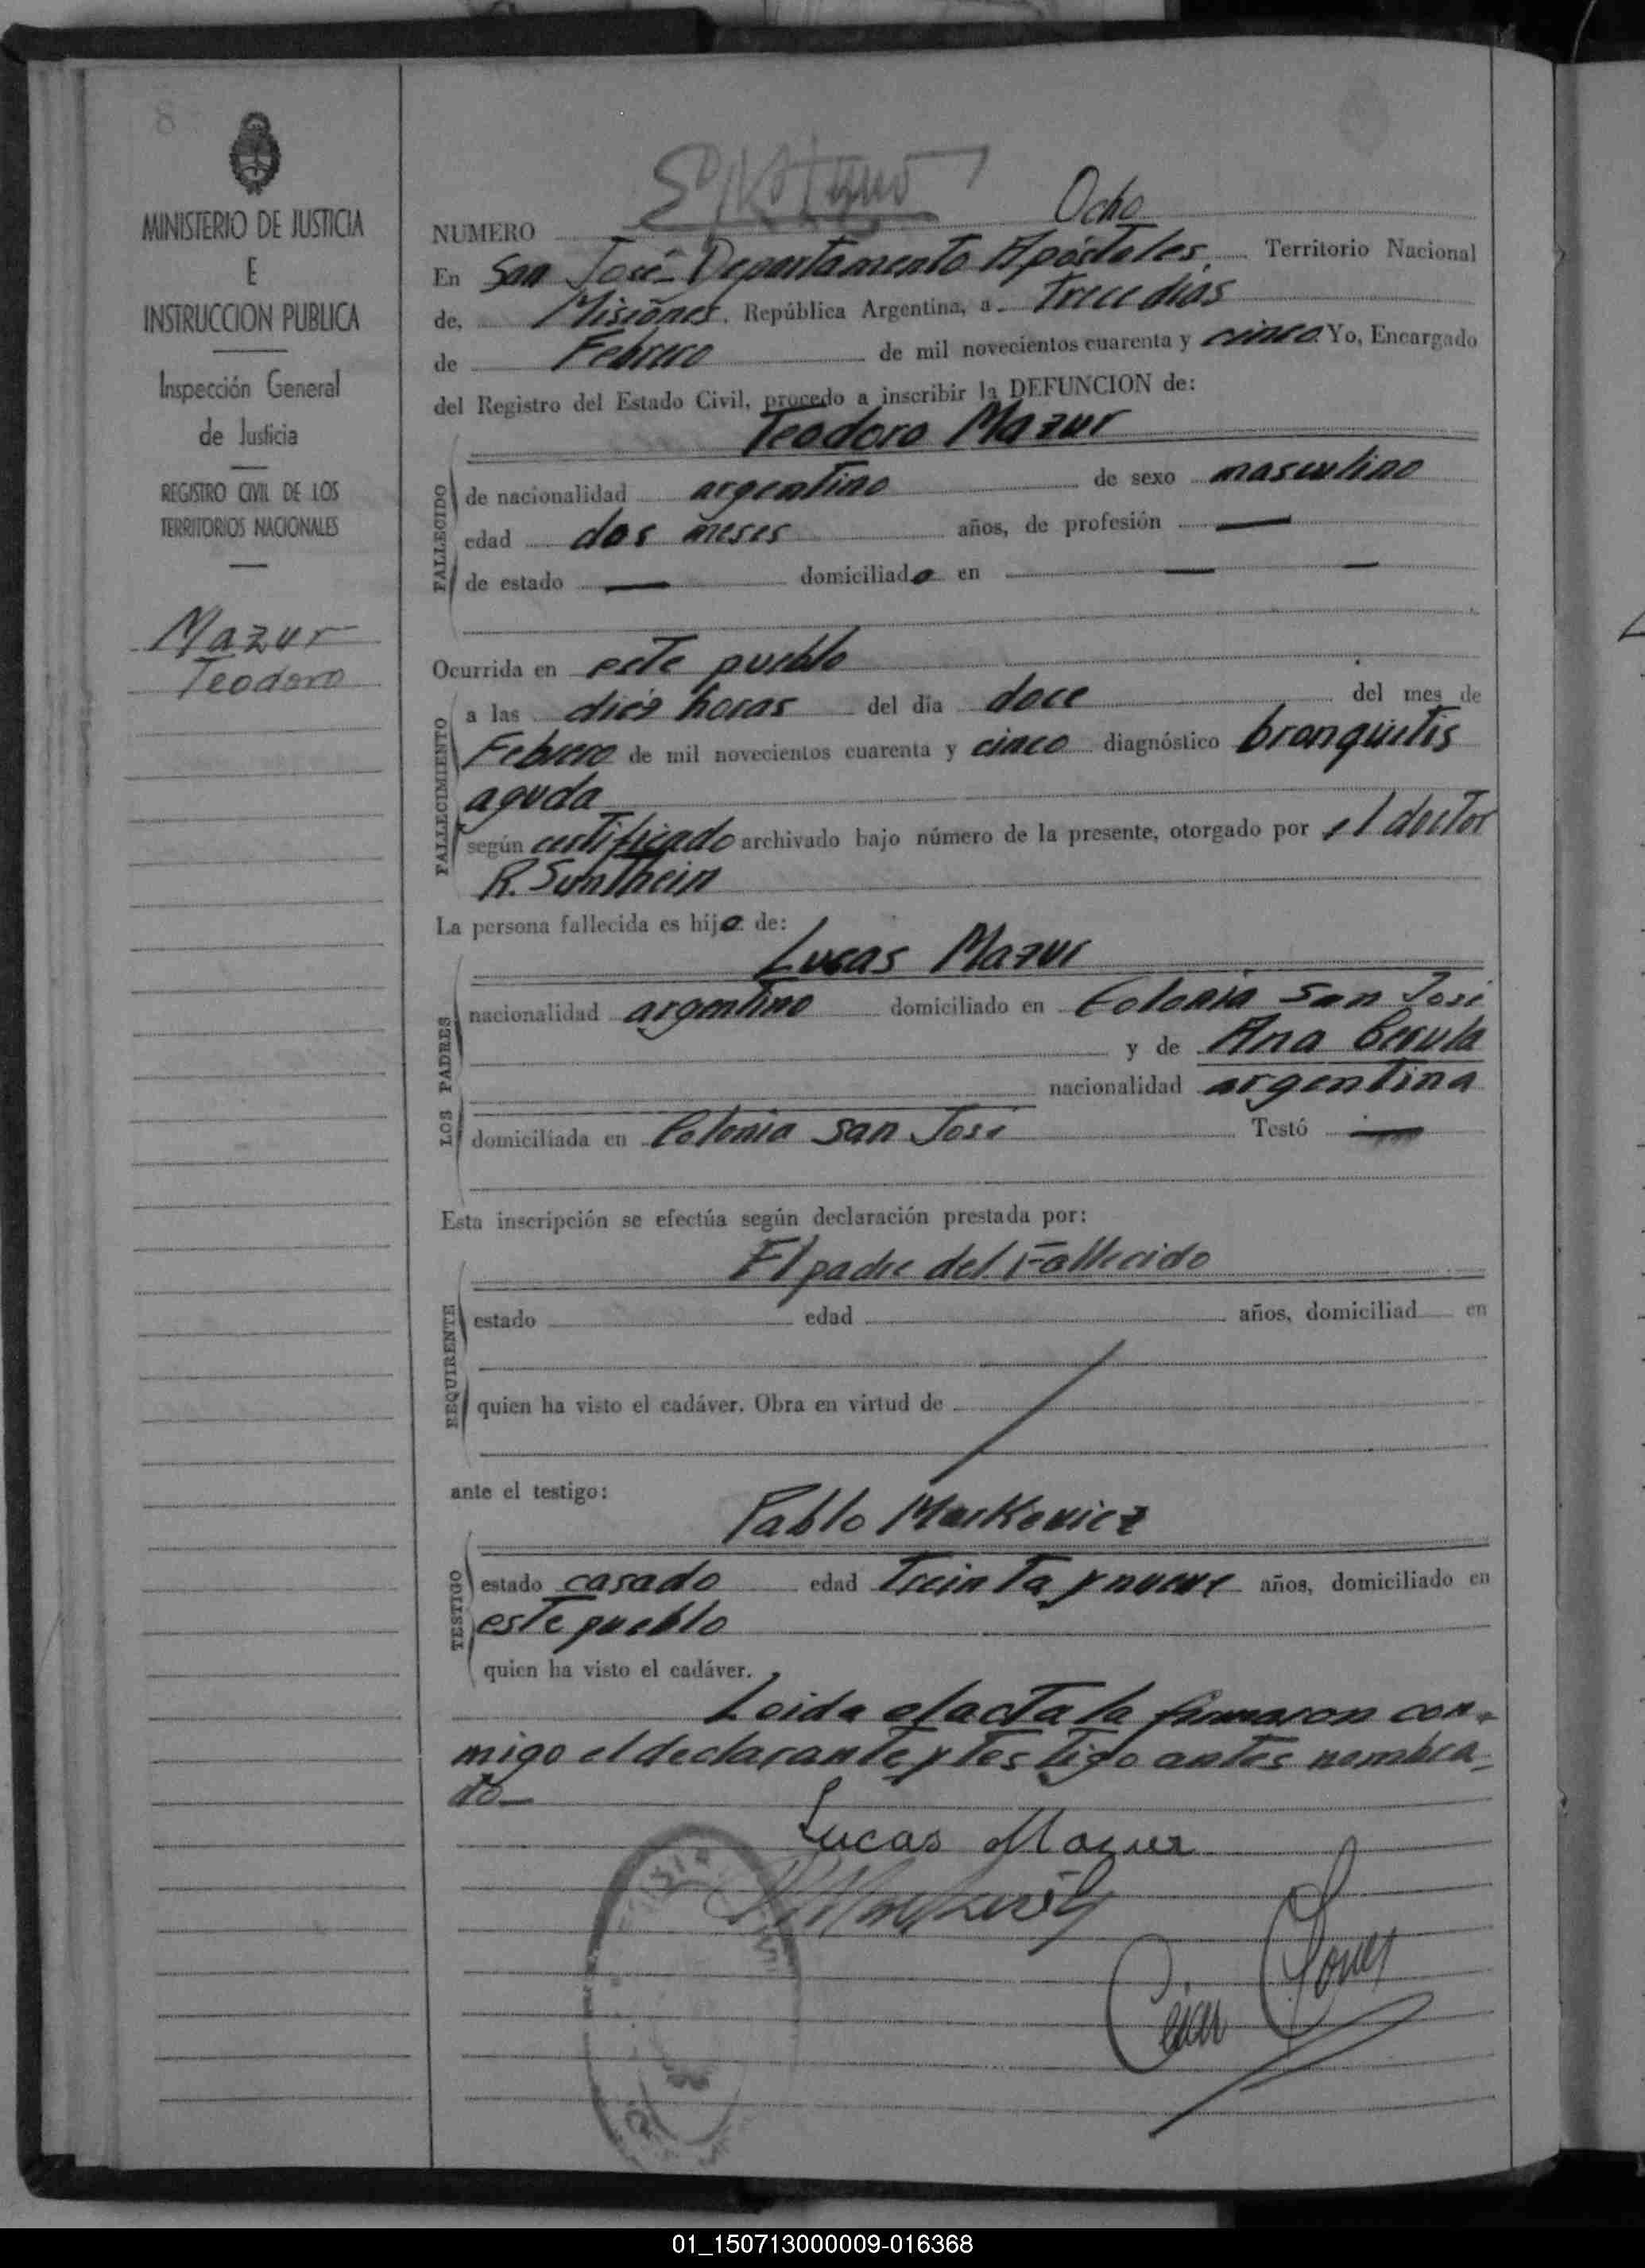 8
MINISTERIO DE JUSTICIA
E
INSTRUCCION PUBLICA
Inspección General
de Justicia
REGISTRO CIVIL DE LOS
TERRITORIOS NACIONALES
Mazur
Teodoro
NUMERO Ocho
En San José - Departamento Apóstoles, Territorio Nacional
de, Misiones, República Argentina, a Trece dias
de Febrero de mil novecientos cuarenta y cinco Yo, Encargado
del Registro del Estado Civil, procedo a inscribir la DEFUNCION de:
Teodoro Mazur
FALLECIDO
de nacionalidad argentino de sexo masculino
edad dos meses años, de profesión —
de estado — domiciliado en — —
Ocurrida en este pueblo
FALLECIMIENTO
a las diéz horas del día doce del mes de
Febrero de mil novecientos cuarenta y cinco diagnóstico bronquitis
aguda
según certificado archivado bajo número de la presente, otorgado por el doctor
R. Sunthein
La persona fallecida es hijo de:
Lucas Mazur
LOS PADRES
nacionalidad argentino domiciliado en Colonia San José
y de Ana
nacionalidad argentina
domiciliada en Colonia San José Testó —
Esta inscripción se efectúa según declaración prestada por:
El padre del Fallecido
REQUIRENTE
estado edad años, domiciliad en
quien ha visto el cadáver. Obra en virtud de
ante el testigo:
Pablo Markovicz
TESTIGO
estado casado edad Treinta y nueve años, domiciliado en
este pueblo
quien ha visto el cadáver.
Leida el acta la firmaron con-
migo el declarante y testigo antes nombra-
do—
Lucas Mazur
01_150713000009-016368